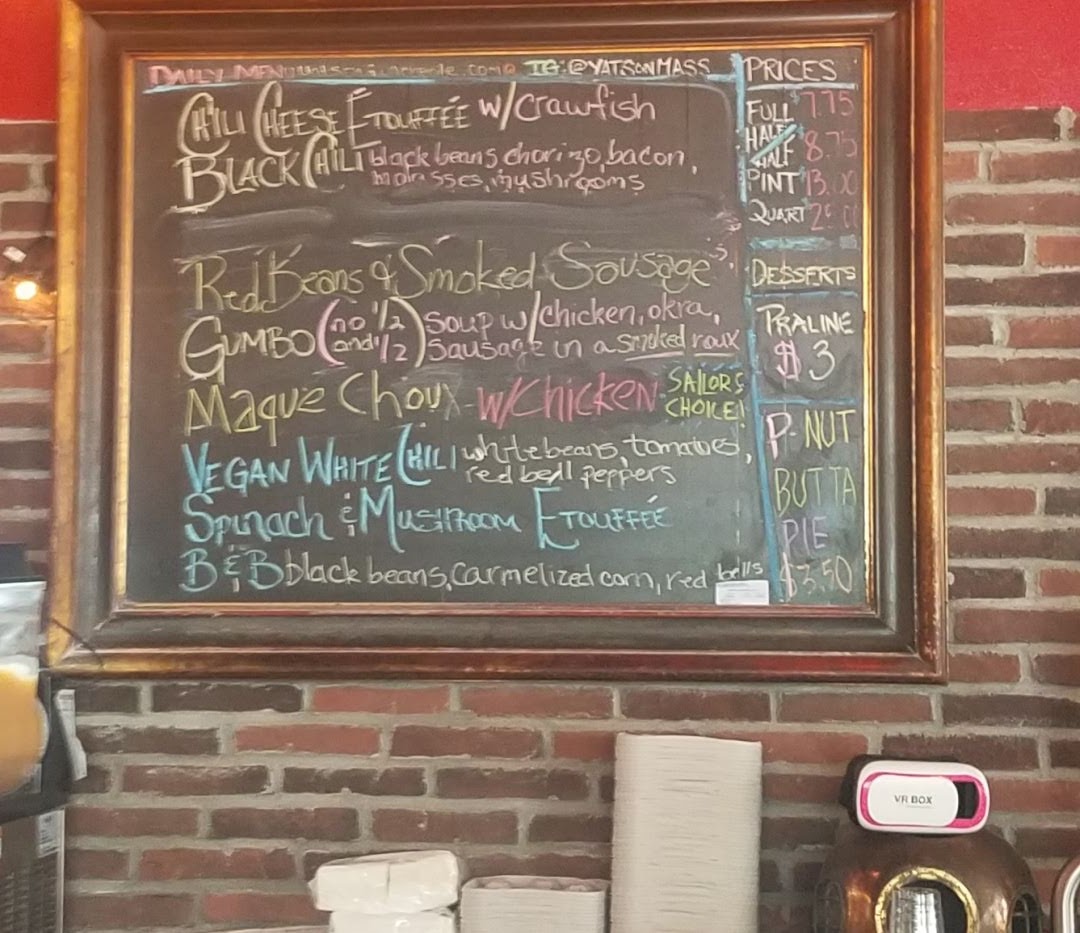 DAILY MENU IG: @YATSONMASS
CHILI CHEESE ÉTOUFFÉE w/crawfish
BLACK CHILI black beans, chorizo, bacon,
molasses, mushrooms
Red Beans & Smoked Sausage
GUMBO (no 1/2 and 1/2) soup w/chicken, okra,
sausage in a smoked roux
Maque Choux w/Chicken SAILORS
CHOICE!
VEGAN WHITE CHILI white beans, tomatoes,
red bell peppers
Spinach & MUSHROOM ETOUFFÉE
B & B black beans, Carmelized corn, red bells
PRICES
FULL $7.75
HALF/HALF 8.75
PINT 13.00
QUART
DESSERTS
PRALINE
$3
P-NUT
BUTTA
PIE
$3.50
VR BOX